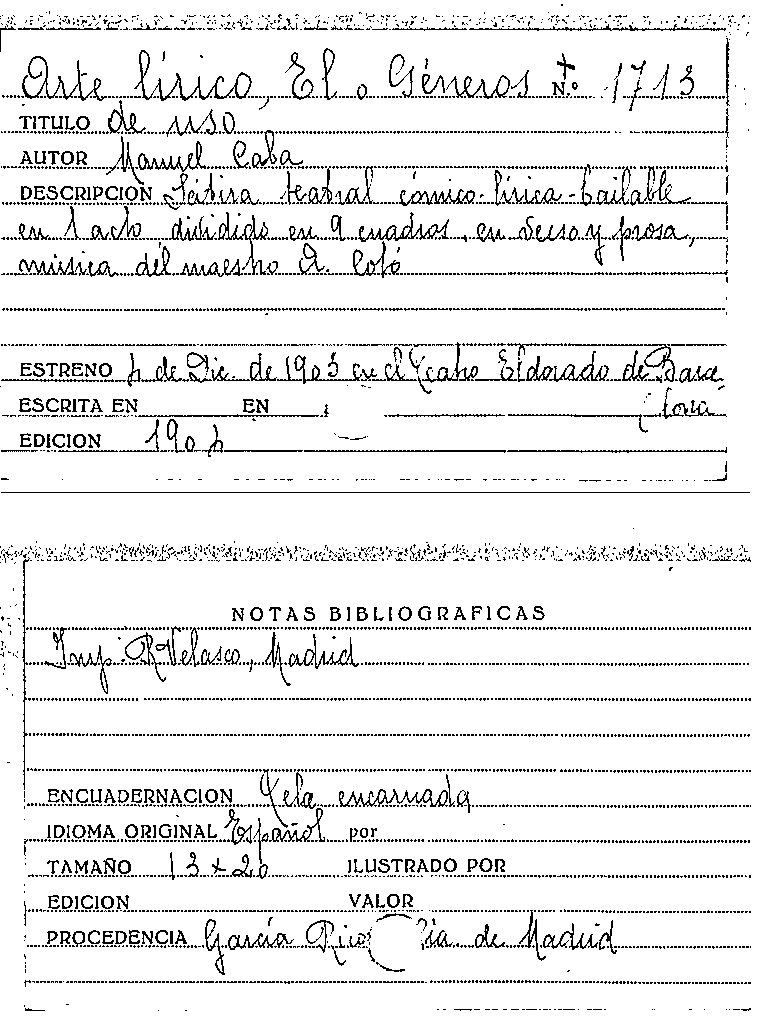 Arte lírico, El o Géneros Nº 1713
TITULO de uso
AUTOR Manuel Caba
DESCRIPCION Sátira teatral cómico-lírica-bailable
en 1 acto dividido en 9 cuadros, en verso y prosa,
música del maestro A. Cotó
ESTRENO 4 de Dic. de 1903 en el Teatro Eldorado de Barce
ESCRITA EN EN lona
EDICION 1904
NOTAS BIBLIOGRAFICAS
Imp: R. Velasco, Madrid
ENCUADERNACION Tela encarnada
IDIOMA ORIGINAL Español por
TAMAÑO 13 x 20 ILUSTRADO POR
EDICION VALOR
PROCEDENCIA García Rico Cía. de Madrid